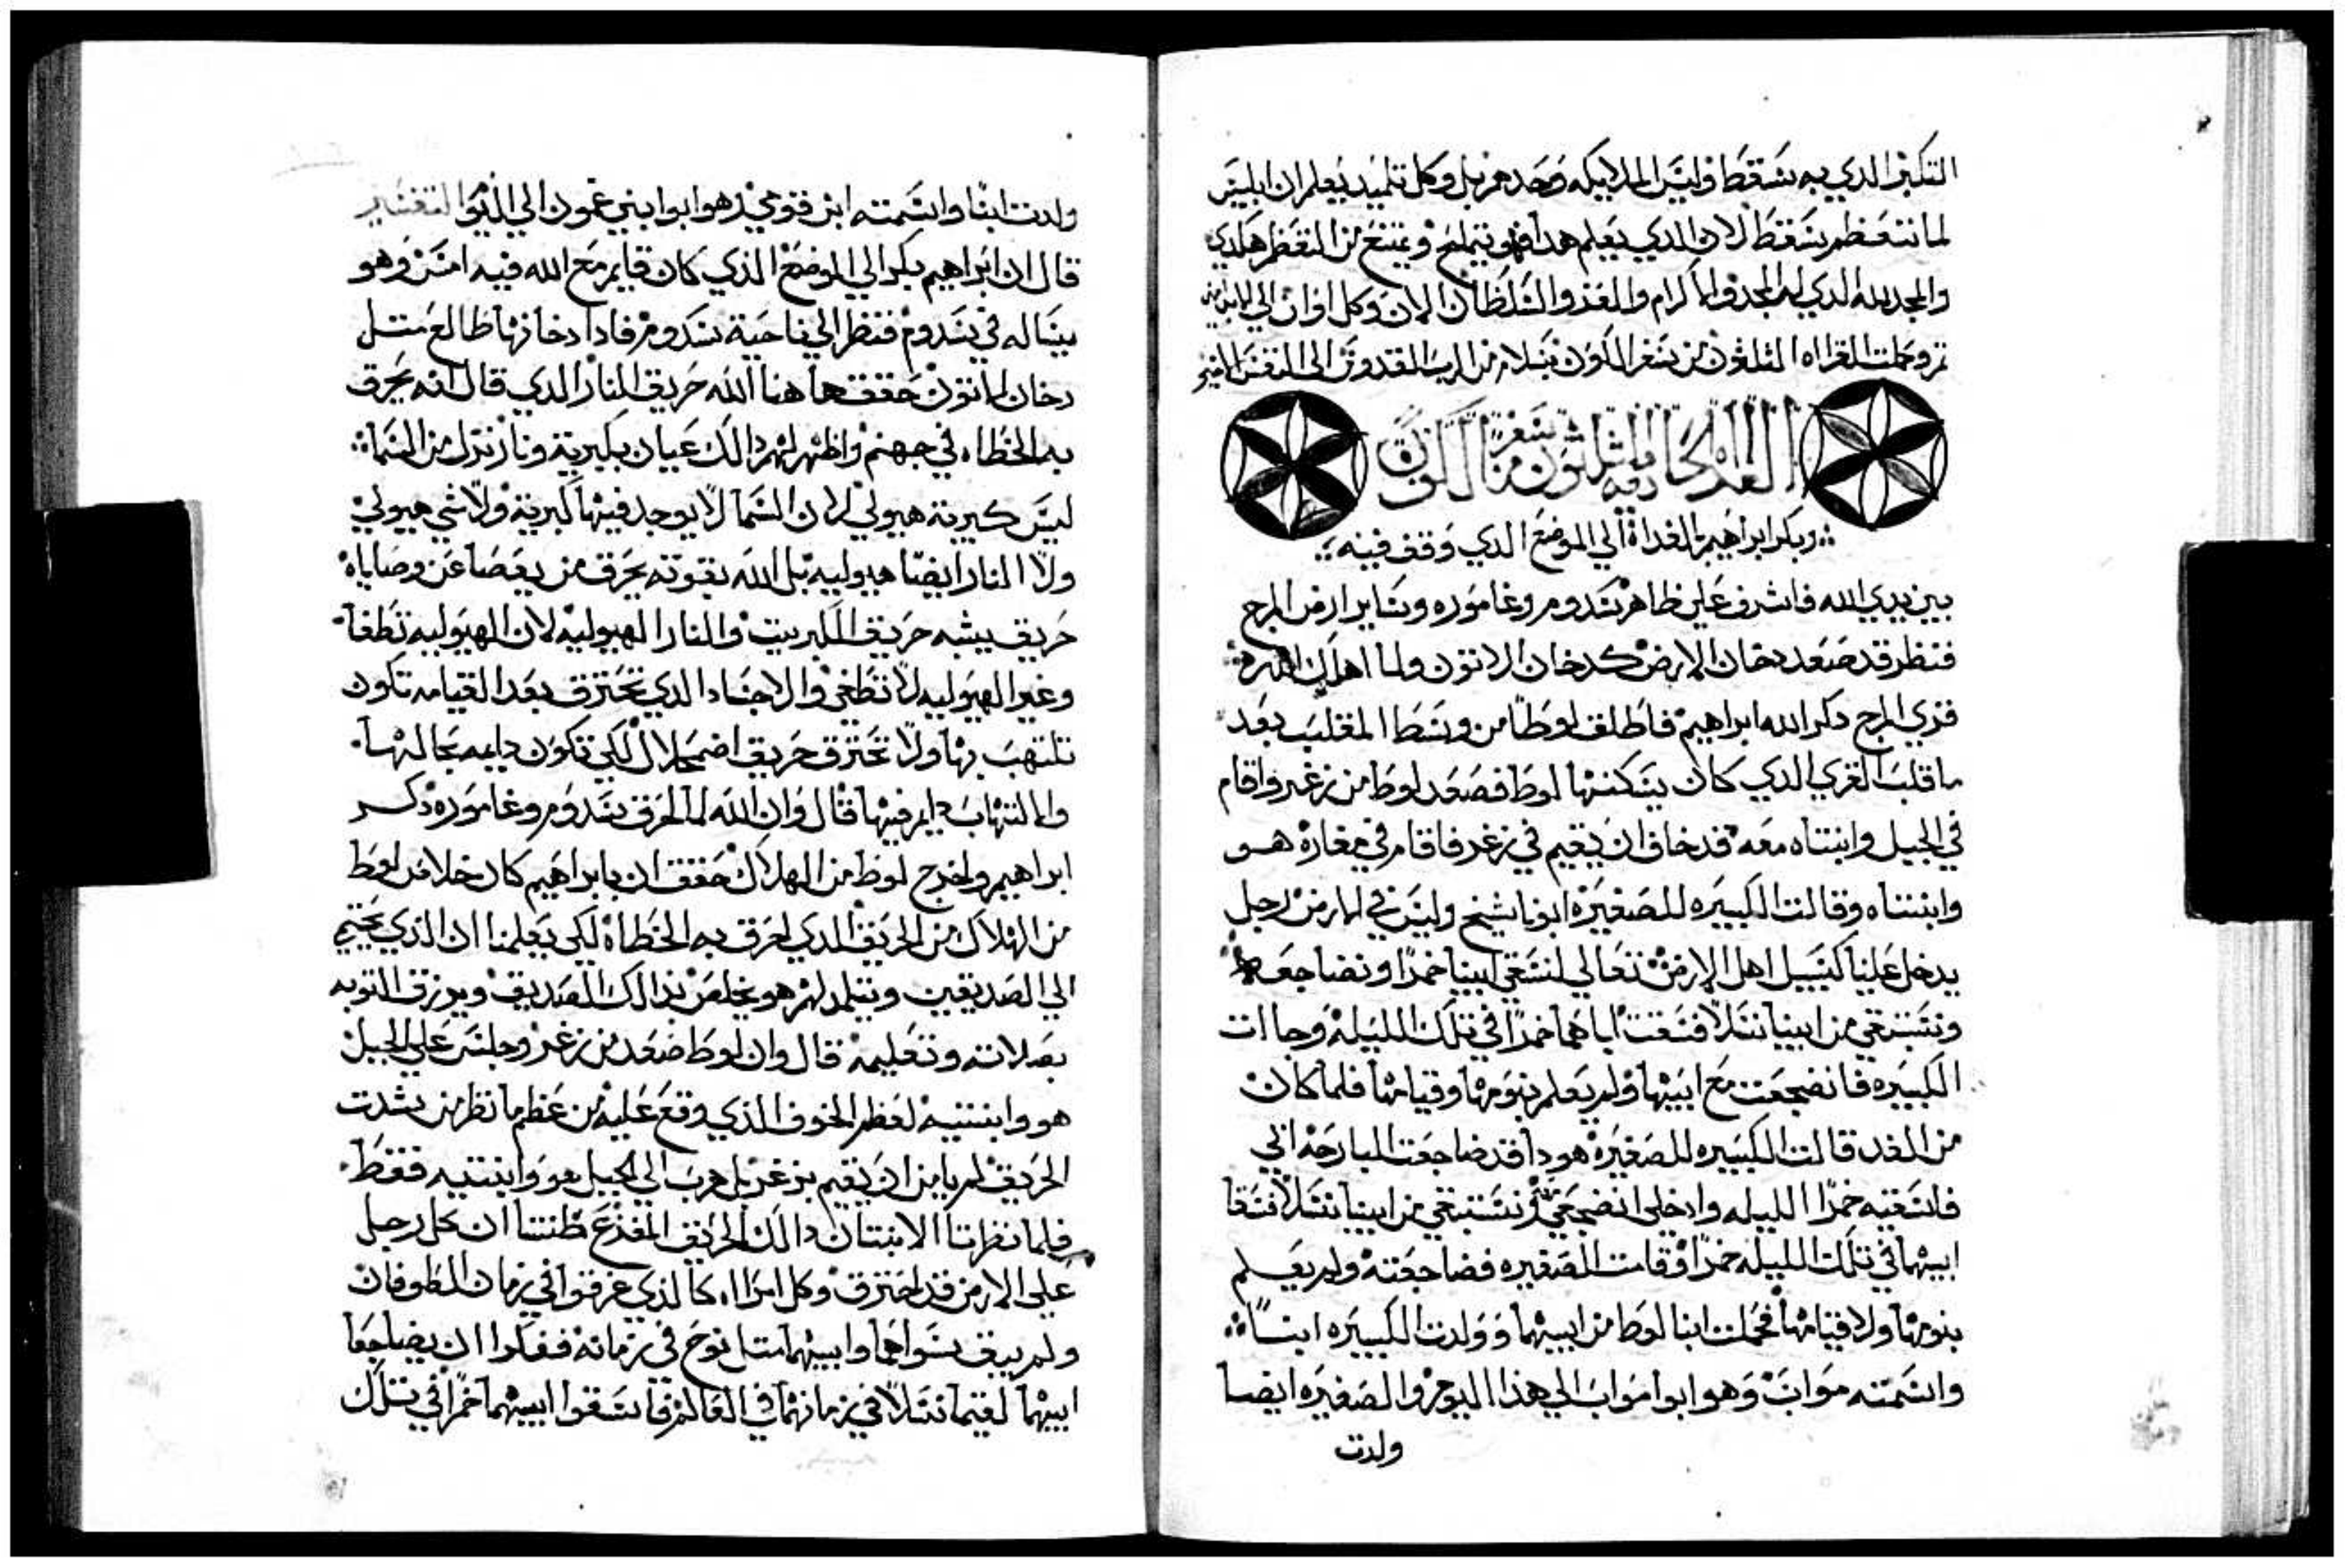 التكبر الدي به سقط وليس الملايكه وحدهم بل وكل تلميد يعلم ان ابليس
لما تعظم سقط لان الدي يعلم هدا فهو يتملح ويمتنع من التعظم هكدي
والمجد لله الدي له المجد والاكرام والعز والسلطان الان وكل اوان الي
تم وكملت القراه الثلثون من سفر الكون بسلام من الرب القدوس الى النفس
القراه الحاديه والثلثون من سفر الكون
وبكر ابراهيم بالغداة الي الموضع الدي وقف فيه
بين يدي الله فاشرف علي ظاهر سدوم وغاموره وساير ارض المرج
فنظر قد صعد دخان الارض كدخان الاتون ولما اهلك الله
قري المرج دكر الله ابراهيم فاطلق لوطا من وسط المقلب بعد
ما قلب القري الدي كان يسكنها لوط فصعد لوط من زغر واقام
في الجبل وابنتاه معه قد خاف ان يقيم في زغر فاقام في مغارة هو
وابنتاه وقالت الكبيره للصغيرة ابونا شيخ وليس في الارض رجل
يدخل علينا كسبيل اهل الارض تعالي لنسقي ابينا خمرا ونضاجعه
ونستبقي من ابينا نسلا فسقتا اباهما خمرا في تلك الليله وجاات
الكبيره فانضجعت مع ابيها ولم يعلم بنومها وقيامها فلما كان
من الغد قالت الكبيره للصغيره هودا قد ضاجعت البارحة ابي
فاسقيه خمرا الليله وادخلي انضجعي ونستبقي من ابينا نسلا فسقا
ابيهما في تلك الليله خمرا وقامت الصغيره فضاجعته ولم يعلم
بنومها ولا قيامها فحملت ابنتا لوط من ابيهما وولدت الكبيره ابنا
واسمته مواب وهو ابو امواب الي هذا اليوم والصغيره ايضا
ولدت
ولدت ابنا واسمته ابن قومي هو ابو ابني عمون الي اليوم التفسير
قال ان ابراهيم بكر الي الموضع الذي كان قايم مع الله فيه امس وهو
يساله في سدوم فنظر الي ناحية سدوم فادا دخانها طالع متل
دخان الاتون حقق هاهنا الله حريق النار الدي قال انه يحرق
به الخطاه في جهنم واظهر لهم دالك عيان بكبرية ونار نزل من السما
ليس كبريته هيولي لان السما لا يوجد فيها كبرية ولا شي هيولي
ولا النار ايضا هيوليه بل الله بقوته يحرق من يعصا عن وصاياه
حريق يشبه حريق الكبريت والنار الهيوليه لان الهيوليه تطفا
وغير الهيوليه لا تطفي والاجساد الدي تحترق بعد القيامه تكون
تلتهب بها ولا تحترق حريق اضمحلال لكي تكون دايمه بحالها
والتهاب دايم فيها قال وان الله لما احرق سدوم وغاموره دكر
ابراهيم واخرج لوط من الهلاك حقق ان بابراهيم كان خلاص لوط
من الهلاك من الحريق الدي احرق به الخطاة لكي يعلمنا ان الذي يحتمي
الي الصديقين ويتلمد لهم هو يخلص بدالك الصديق ويرزق التوبه
بصلاته وتعليمه قال وان لوط صعد من زغر وجلس علي الجبل
هو وابنتيه لعظم الخوف الذي وقع عليه من عظم ما نظر من شدت
الحريق لم يامن ان يقيم بزغر بل هرب الي الجبل هو وابنتيه فقط
فلما نظرتا الابنتان دالك الحريق المفزع ظنتا ان كل رجل
علي الارض قد احترق وكل امراه كالذي غرقوا في زمان الطوفان
ولم يبق سواهما وابيهما متل نوح في زمانه ففكروا ان يضاجعا
ابيهما لتقيما نسلا في زمانهما في العالم فاسقوا ابيهما خمرا في تلك